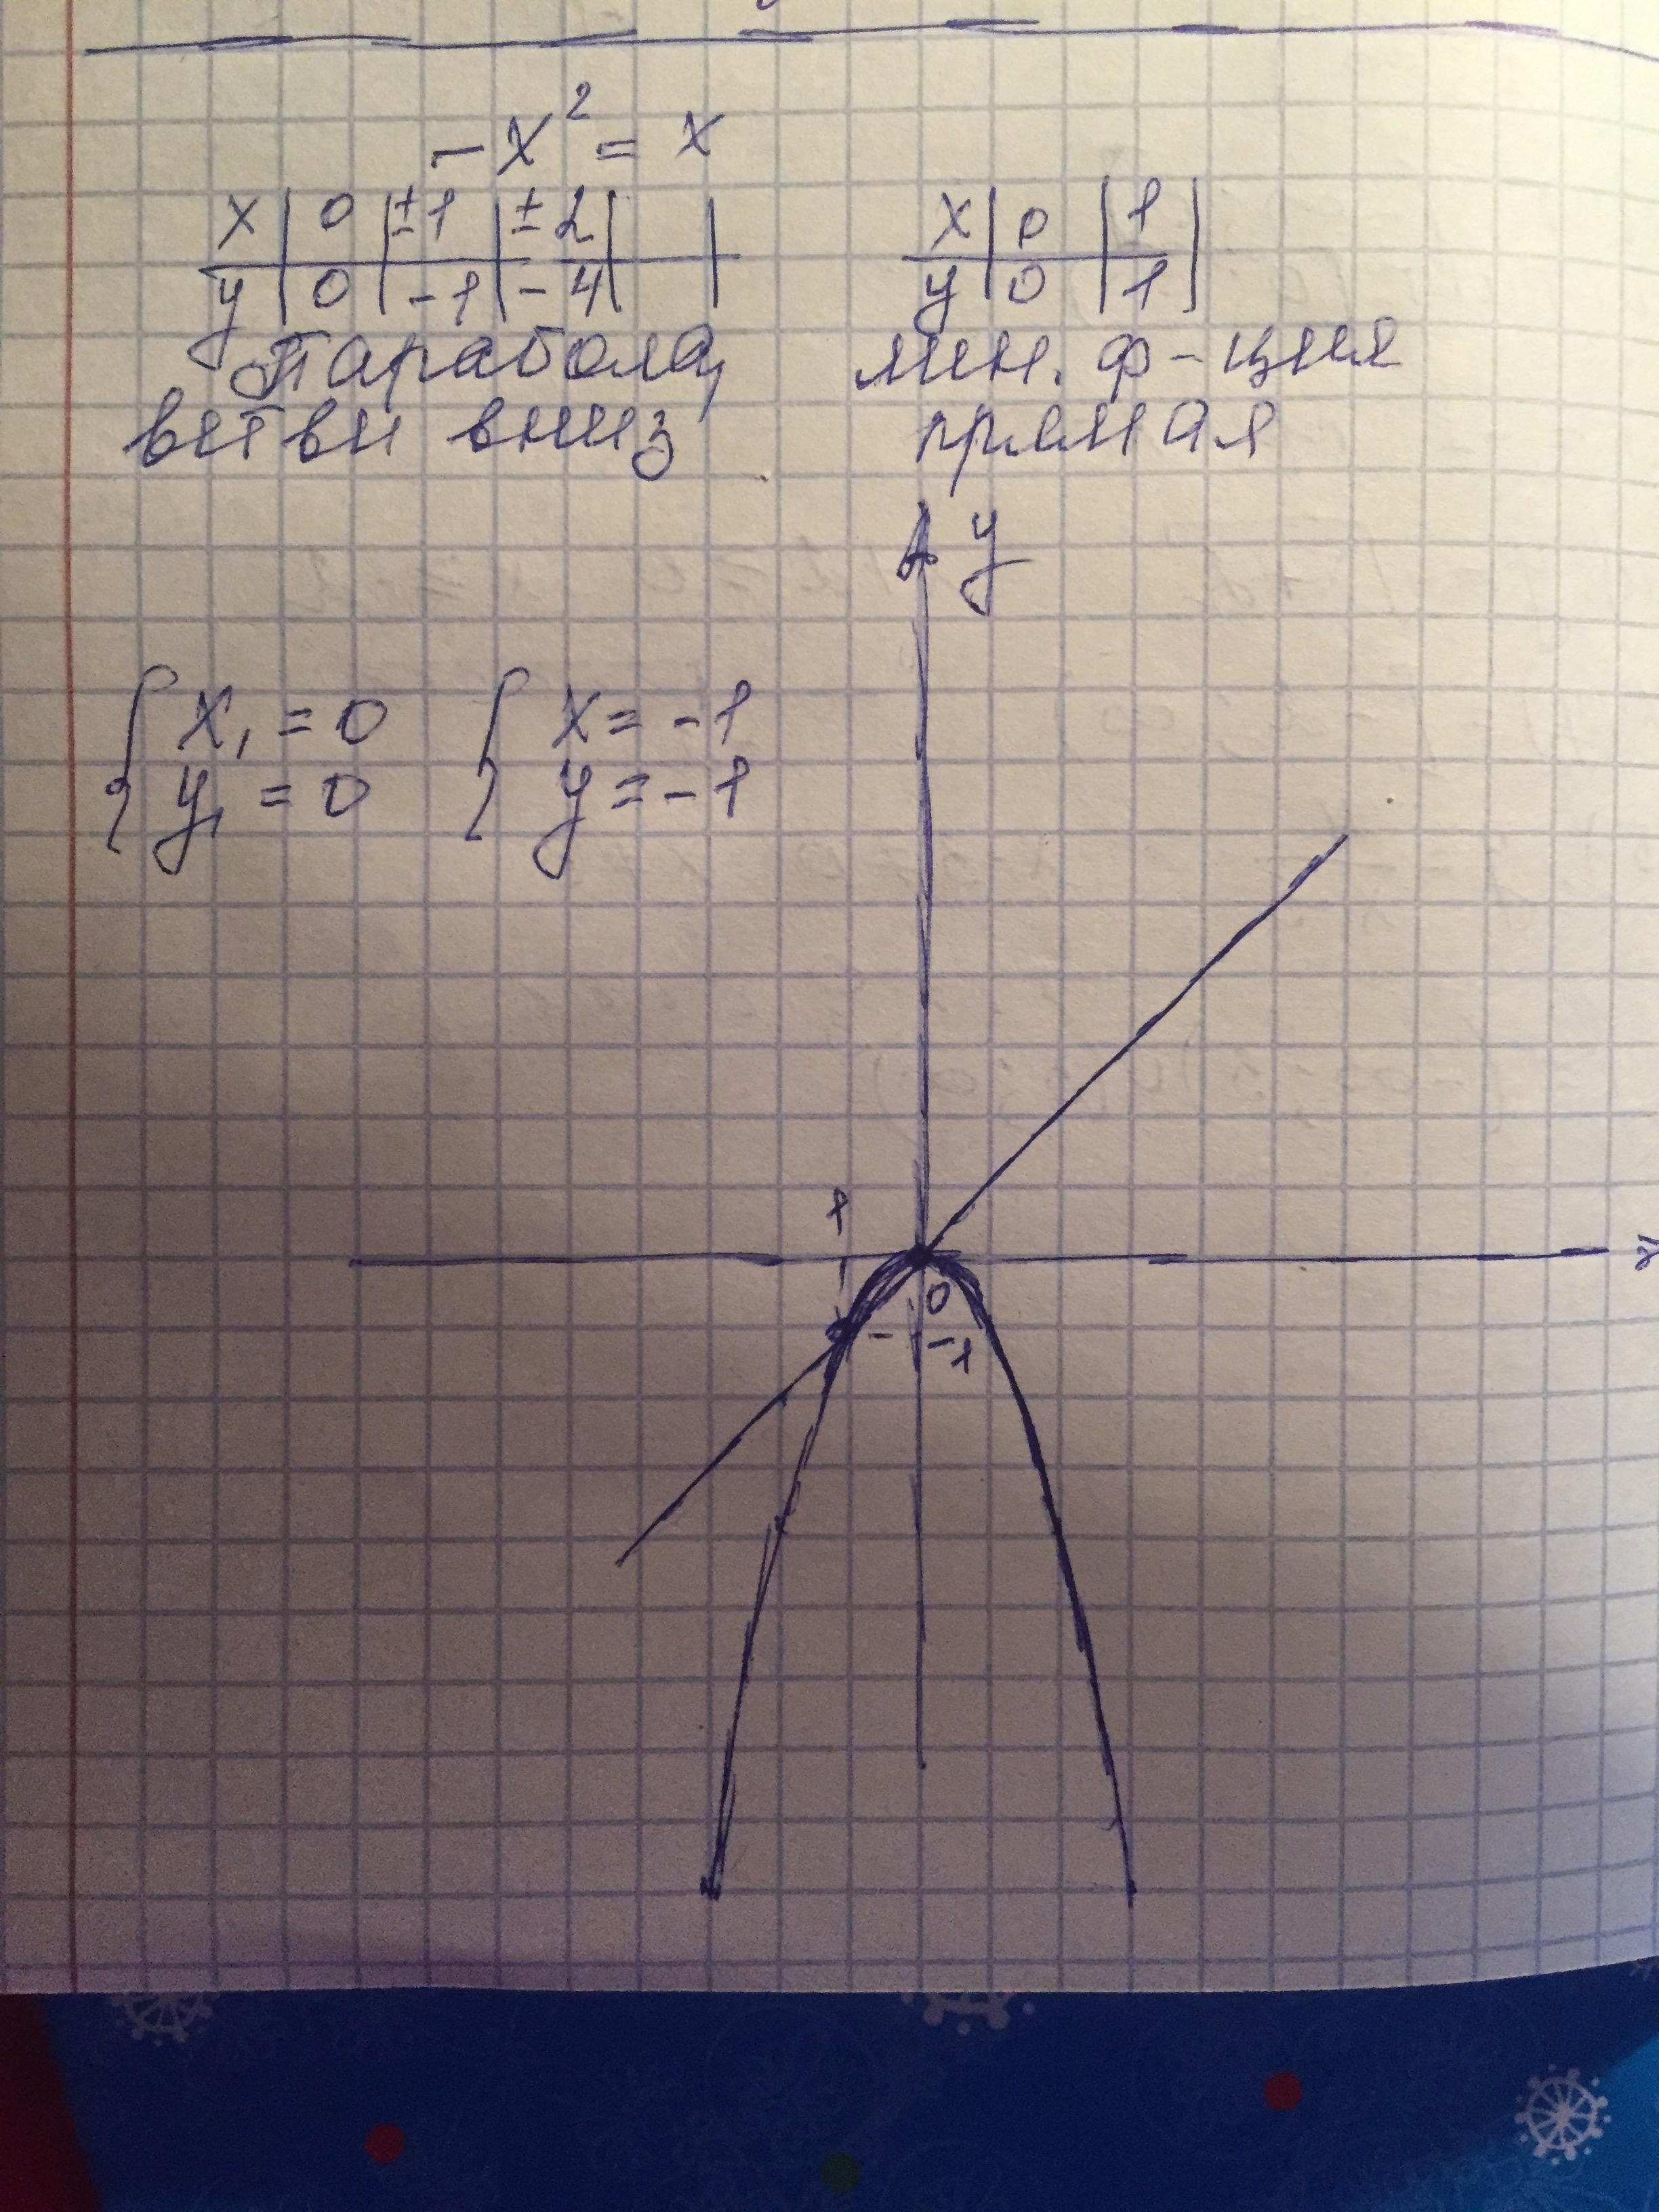 -x² = x
x | 0 | ±1 | ±2 | |
y | 0 | -1 | -4 | |
x | 0 | 1 |
y | 0 | 1 |
парабола,
ветви вниз
лин. ф-ция
прямая
y
{ x₁ = 0
y₁ = 0
{ x = -1
y = -1
1
x
0
-1